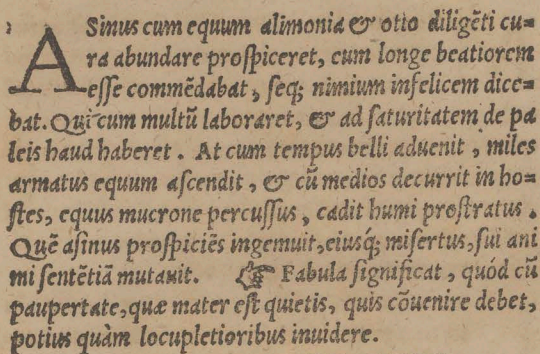 ASinus cum equum alimonia & otio diligẽti cu=
ra abundare proſpiceret, cum longe beatiorem
eſſe commẽdabat, ſeq; nimium infelicem dice=
bat. Qui cum multũ laboraret, & ad ſaturitatem de pa
leis haud haberet. At cum tempus belli aduenit, miles
armatus equum aſcendit, & cũ medios decurrit in ho=
ſtes, equus mucrone percuſſus, cadit humi proſtratus.
Quẽ aſinus proſpiciẽs ingemuit, eiusq́; miſertus, ſui ani
mi ſentẽtiã mutauit. ☞ Fabula ſignificat, quòd cũ
paupertate, quæ mater eſt quietis, quis cõuenire debet,
potius quàm locupletioribus inuidere.